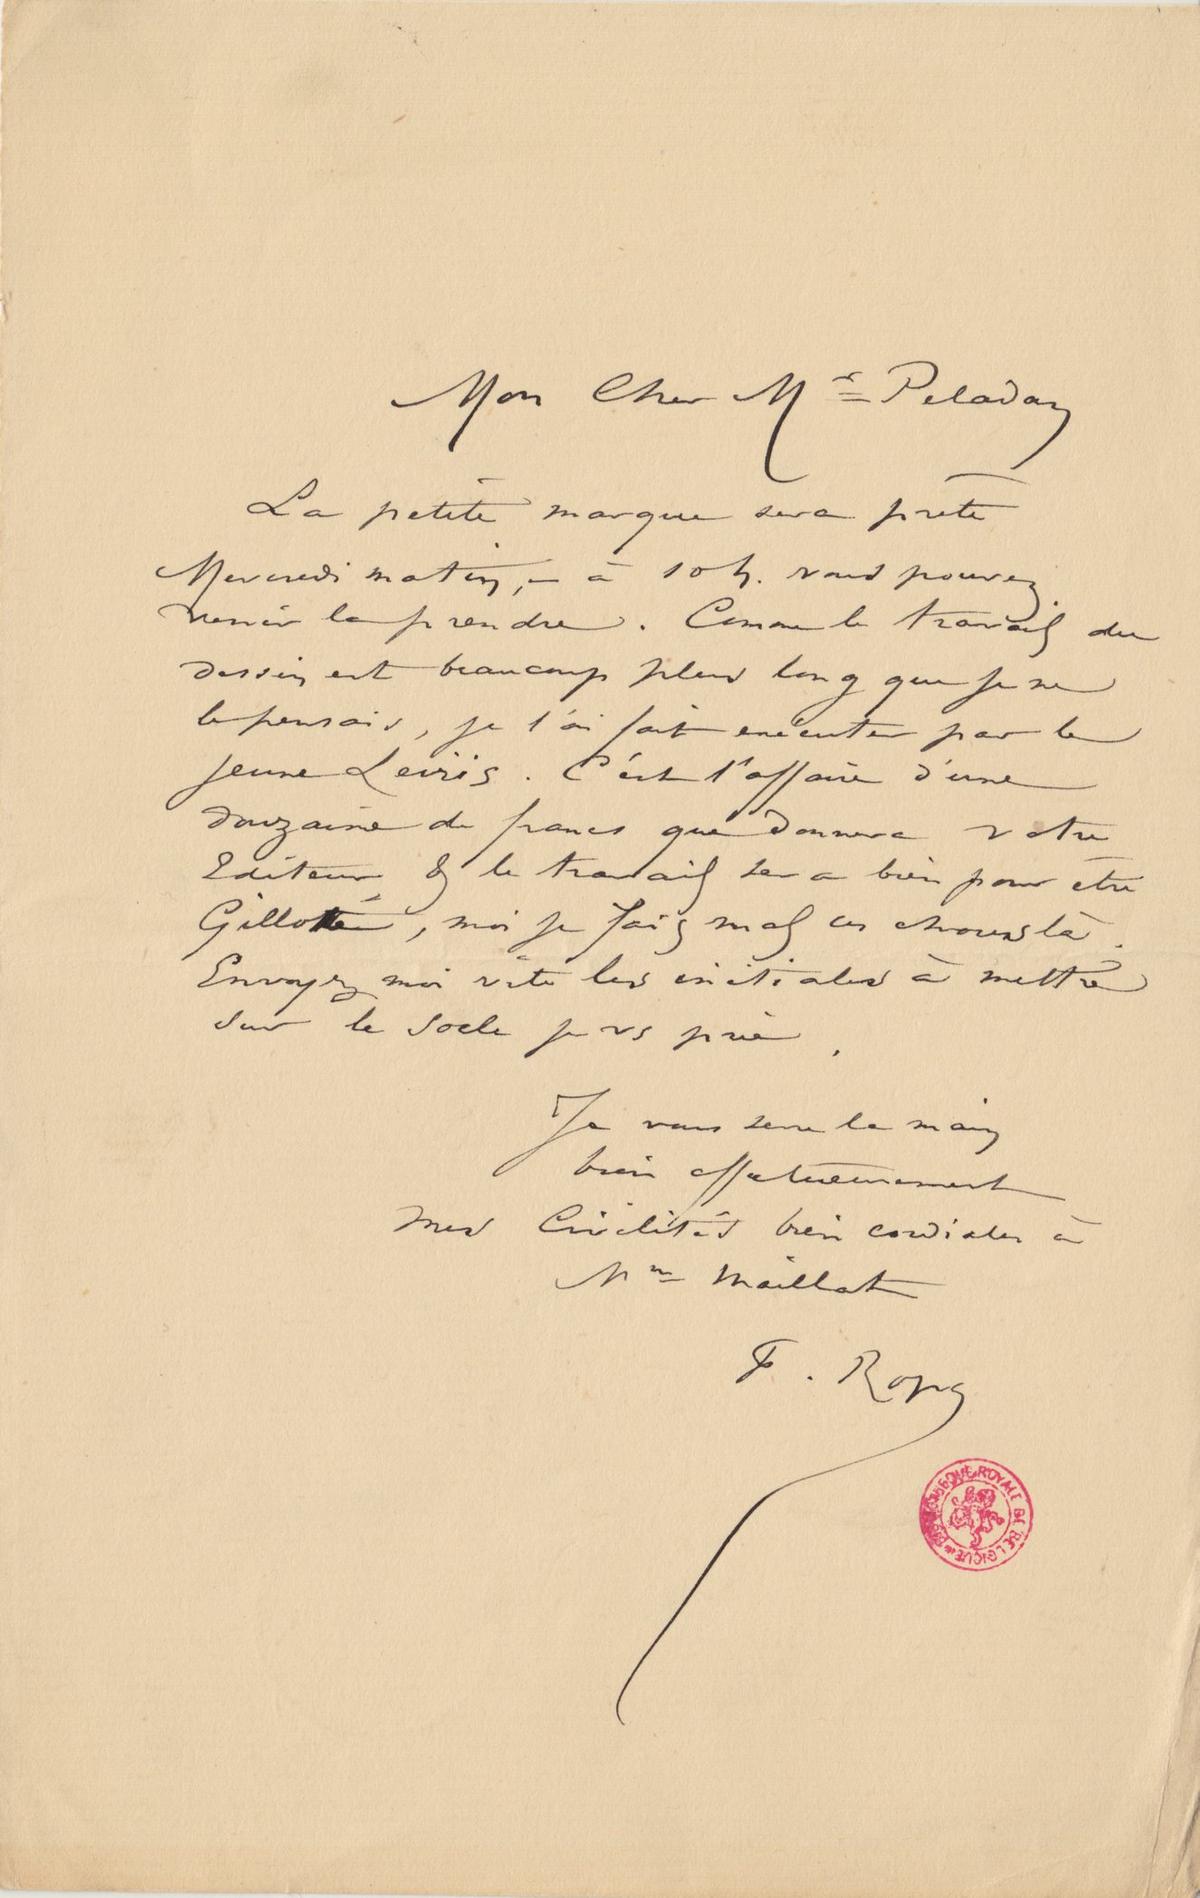 Mon Cher Mr Peladan
La petite marque sera prète
Mercredi matin, – à 10 h. vous pouvez
venir la prendre. Comme le travail du
dessin est beaucoup plus long que je ne
le pensais, je l'ai fait exécuter par le
jeune Leiris. C'est l'affaire d'une
douzaine de francs que donnera votre
Editeur, & le travail sera bien pour être
Gillotté, moi je fais mal ces choses là.
Envoyez moi vite les initiales à mettre
sur le socle je vs prie,
Je vous serre la main
bien affectueusement
mes Civilités bien cordiales à
Mme Maillat
F. Rops
BIBLIOTHEQUE ROYALE DE BELGIQUE